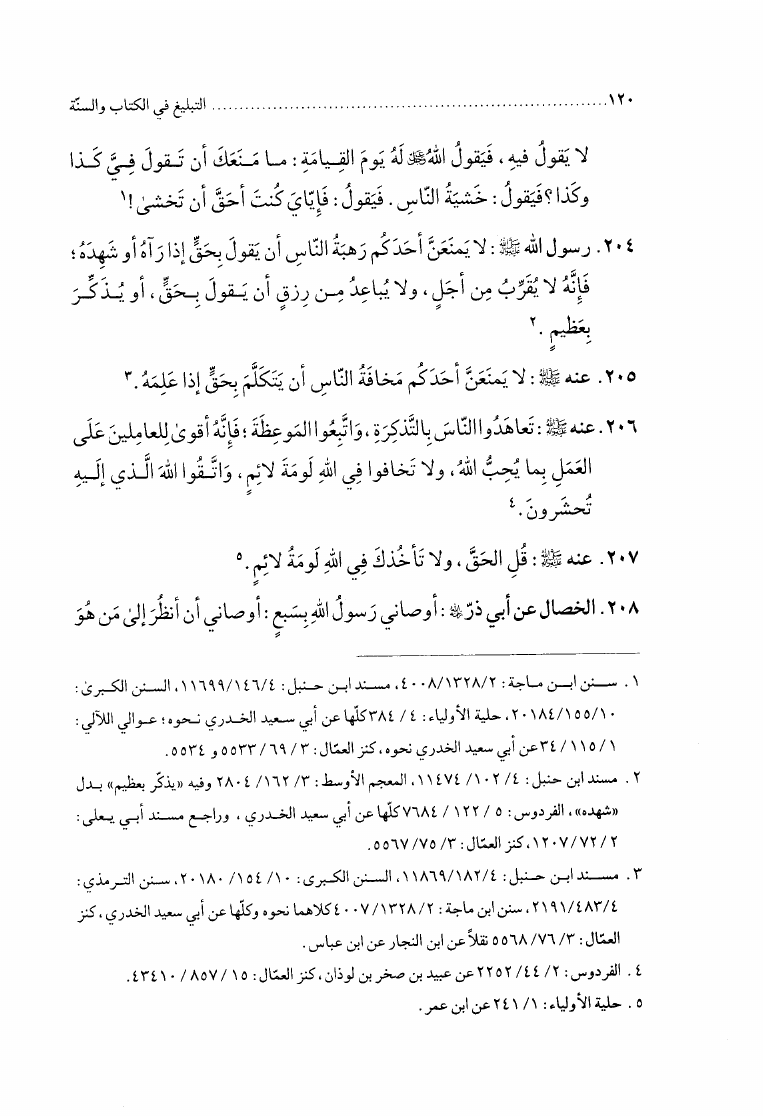 ١٢٠ ........................................................ التبليغ في الكتاب والسنّة
لا يَقولُ فيهِ ، فَيَقولُ اللهُ ﷻ لَهُ يَومَ القِيامَةِ : ما مَنَعَكَ أن تَقولَ فِيَّ كَذا
وكَذا ؟ فَيَقولُ : خَشيَةُ النّاسِ . فَيَقولُ : فَإِيّايَ كُنتَ أحَقَّ أن تَخشىٰ !١
٢٠٤. رسول الله ﷺ : لا يَمنَعَنَّ أحَدَكُم رَهبَةُ النّاسِ أن يَقولَ بِحَقٍّ إذا رَآهُ أو شَهِدَهُ ؛
فَإِنَّهُ لا يُقَرِّبُ مِن أجَلٍ ، ولا يُباعِدُ مِن رِزقٍ أن يَقولَ بِحَقٍّ ، أو يُذَكِّرَ
بِعَظيمٍ .٢
٢٠٥. عنه ﷺ : لا يَمنَعَنَّ أحَدَكُم مَخافَةُ النّاسِ أن يَتَكَلَّمَ بِحَقٍّ إذا عَلِمَهُ .٣
٢٠٦. عنه ﷺ : تَعاهَدُوا النّاسَ بِالتَّذكِرَةِ ، وَاتَّبِعُوا المَوعِظَةَ ؛ فَإِنَّهُ أقوىٰ لِلعامِلينَ عَلَى
العَمَلِ بِما يُحِبُّ اللهُ ، ولا تَخافوا فِي اللهِ لَومَةَ لائِمٍ ، وَاتَّقُوا اللهَ الَّذي إلَيهِ
تُحشَرونَ .٤
٢٠٧. عنه ﷺ : قُلِ الحَقَّ ، ولا تَأخُذكَ فِي اللهِ لَومَةُ لائِمٍ .٥
٢٠٨. الخصال عن أبي ذرّ : أوصاني رَسولُ اللهِ بِسَبعٍ : أوصاني أن أنظُرَ إلىٰ مَن هُوَ
١ . سـنن ابـن مـاجة : ٢/ ١٣٢٨/ ٤٠٠٨، مسند ابن حنبل : ٤/ ١٤٦/ ١١٦٩٩، السنن الكبرىٰ :
١٠/ ١٥٥/ ٢٠١٨٤، حلية الأولياء : ٤ / ٣٨٤ كلّها عن أبي سعيد الخدري نحوه ؛ عوالي اللآلي :
١/ ١١٥/ ٣٤ عن أبي سعيد الخدري نحوه ، كنز العمّال : ٣ / ٦٩ / ٥٥٣٣ و ٥٥٣٤.
٢ . مسند ابن حنبل : ٤/ ١٠٢ / ١١٤٧٤، المعجم الأوسط : ٣/ ١٦٢ / ٢٨٠٤ وفيه «يذكّر بعظيم» بدل
«شهده» ، الفردوس : ٥ / ١٢٢ / ٧٦٨٤ كلّها عن أبي سعيد الخدري ، وراجع مسند أبي يعلى :
٢ / ٧٢ / ١٢٠٧، كنز العمّال : ٣/ ٧٥/ ٥٥٦٧.
٣ . مسند ابن حنبل : ٤/ ١٨٢/ ١١٨٦٩، السنن الكبرى : ١٠/ ١٥٤/ ٢٠١٨٠، سنن الترمذي :
٤/ ٤٨٣/ ٢١٩١، سنن ابن ماجة : ٢/ ١٣٢٨/ ٤٠٠٧ كلاهما نحوه وكلّها عن أبي سعيد الخدري ، كنز
العمّال : ٣/ ٧٦/ ٥٥٦٨ نقلاً عن ابن النجار عن ابن عباس .
٤ . الفردوس : ٢/ ٤٤/ ٢٢٥٢ عن عبيد بن صخر بن لوذان ، كنز العمّال : ١٥ / ٨٥٧ / ٤٣٤١٠.
٥ . حلية الأولياء : ١/ ٢٤١ عن ابن عمر .